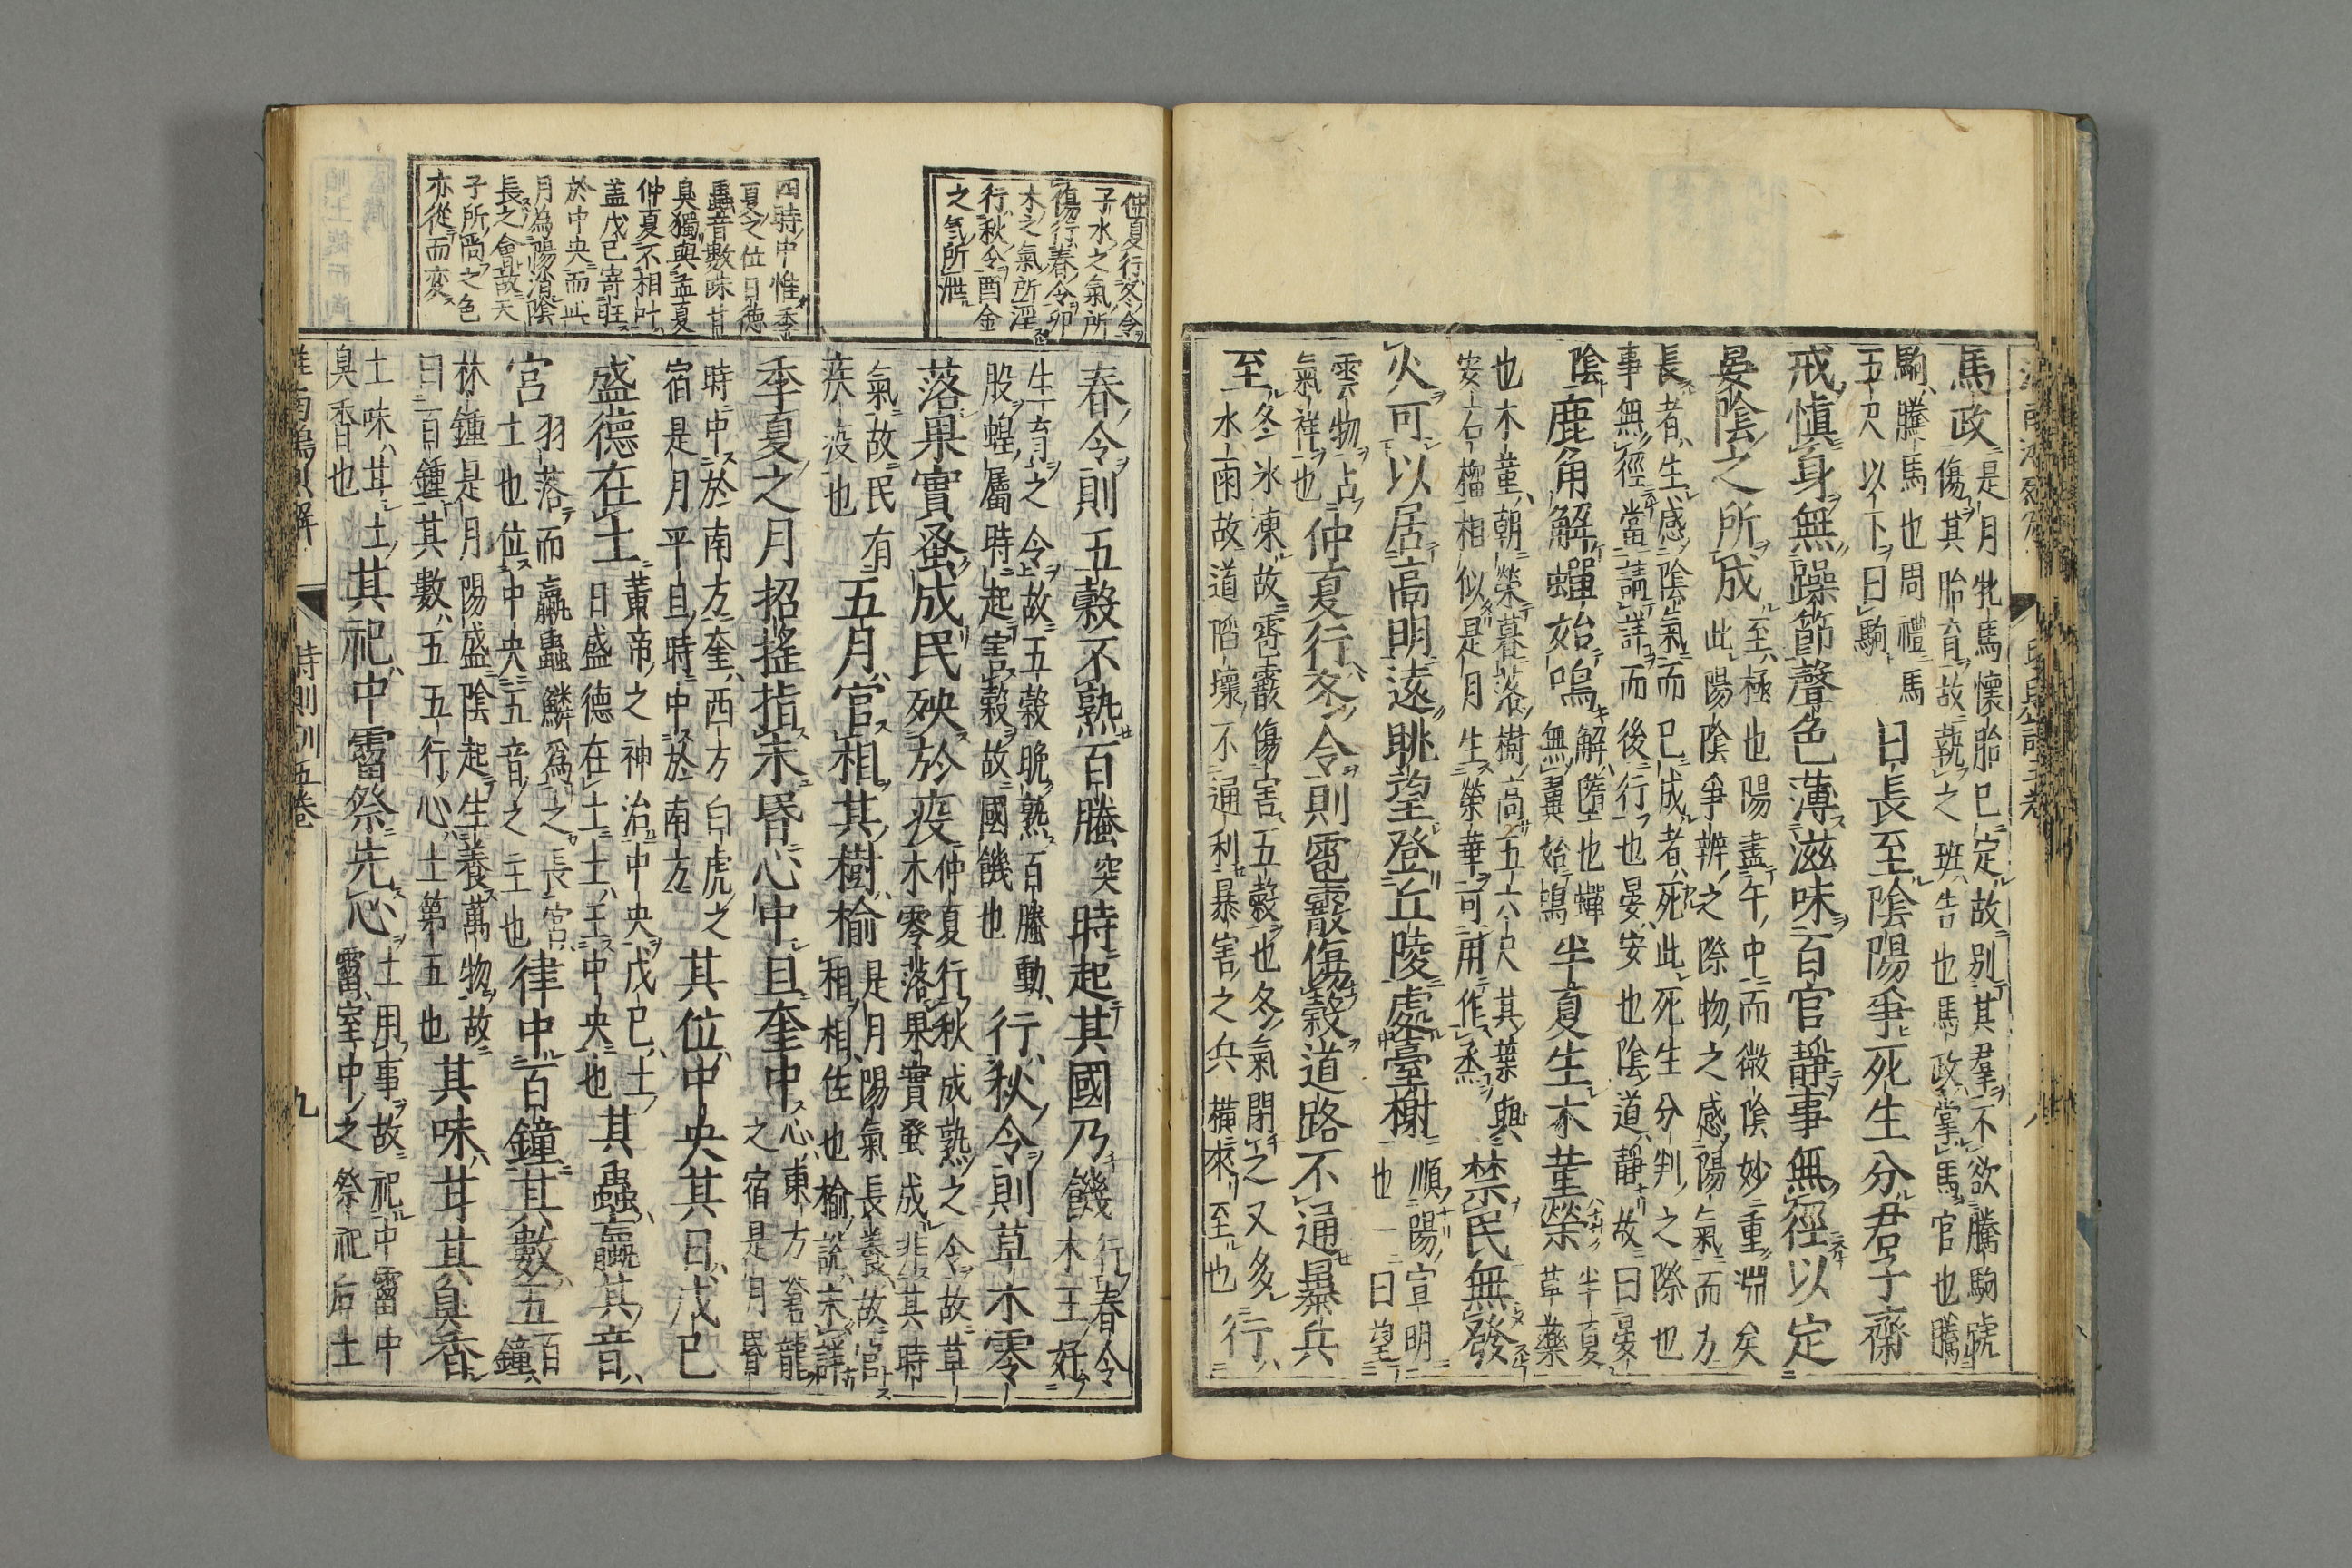 馬政是月牝馬懷胎已定故別其羣不欲騰駒號
傷其胎育故執之班告也馬政掌馬官也騰
駒騰馬也周禮馬
五尺以下曰駒
日長至陰陽爭死生分君子齋
戒慎身無躁節聲色薄滋味百官靜事無徑以定
晏陰之所成至極也陽盡午中而微陰妙重淵矣
此陽陰爭辨之際物之感陽氣而力
長者生感陰氣而已成者死此死生分判之際也
事無徑當請詳而後行也晏安也陰道靜故曰晏
陰鹿角解蟬始鳴解墮也蟬
無翼始鳴
半夏生木菫榮半夏
草藥
也木菫朝榮暮落樹高五六尺其葉與
安石榴相似是月生榮華可用作烝
禁民無發
火可以居高明遠眺望登丘陵處臺榭順陽宣明
也一曰望
雲物占
氣祥也
仲夏行冬令則雹霰傷穀道路不通暴兵
至冬冰凍故雹霰傷害五穀也冬氣閉之又多
水雨故道陷壞不通利暴害之兵橫來至也
行
仲夏行冬令
子水之氣所
傷行春令卯
木之氣所淫
行秋令酉金
之気所泄
春令則五穀不熟百螣突時起其國乃饑行春令
木王好
生育之令故五穀晚熟百螣動
股蝗屬時起害穀故國饑也
行秋令則草木零
落果實蚤成民殃於疫仲夏行秋成熟之令故草
木零落果實蚤成非其時
氣故民有
疾疫也
五月官相其樹榆是月陽氣長養故官
相相佐也榆說未詳
季夏之月招搖指未昏心中旦奎中心東方蒼龍
之宿是月昏
時中於南方奎西方白虎之
宿是月平旦時中於南方
其位中央其日戊己
盛德在土黃帝之神治中央戊己土
日盛德在土土王中央也
其蟲蠃其音
宮羽落而蠃蟲鱗為之長宮
土也位中央五音之主也
律中百鐘其數五百
鐘
林鍾是月陽盛陰起生養萬物故
曰百鍾其數五五行心土第五也
其味甘其臭香
土味其土
臭香也
其祀中霤祭先心土用事故祀中霤中
霤室中之祭祀后土
四時中惟季
夏之位日徳
蟲音數味其
臭獨與孟夏
仲夏不相叶
盖戊己寄旺
於中央而此
月為陽消陰
長之會故天
子所尚之色
亦從而変
時則訓五巻
九